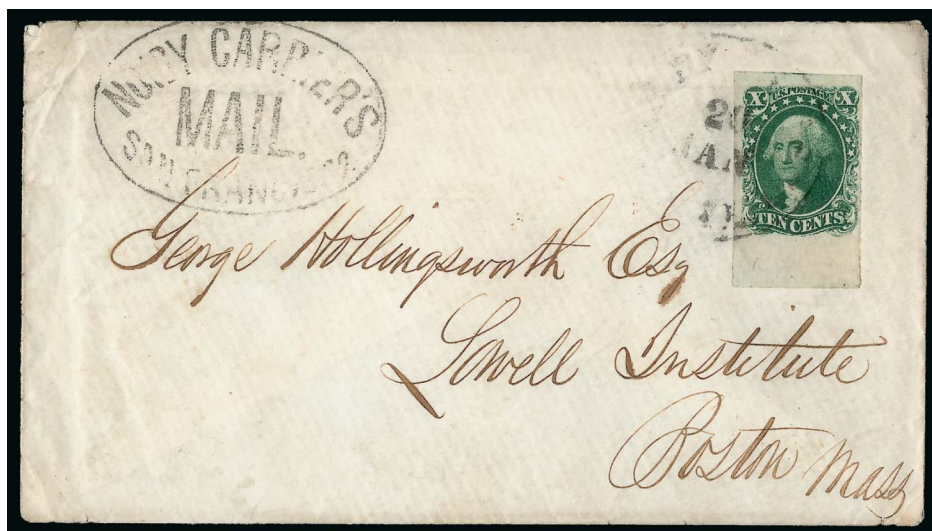 NOISY CARRIER'S
MAIL.
SAN FRANCISCO.
20
JAN
X U.S. POSTAGE X
TEN CENTS
George Hollingsworth Esq
Lowell Institute
Boston Mass